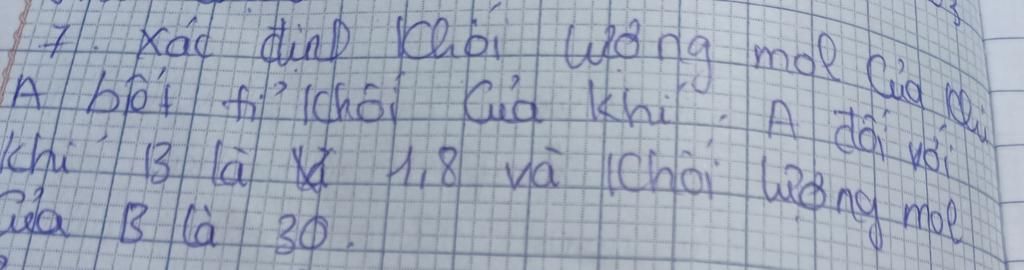 7. Xác định khối lượng mol của khí
A biết tỉ khối của khí A đối với
khí B là 1,8 và khối lượng mol
của B là 30.